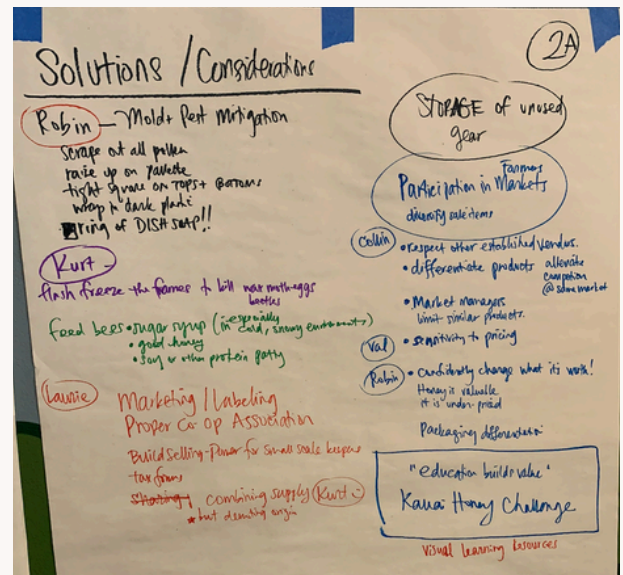 2A
Solutions / Considerations
Robin — Mold + Pest Mitigation
scrape out all pollen
raise up on pallette
tight square on TOPS + BOTTOMS
wrap in dark plastic
ring of DISH SOAP!!
Kurt
flash freeze the frames to kill wax moth eggs
beetles
feed bees • sugar syrup (-especially
in cold, snowy environments)
• good honey
• soy or other protein patty
Laurie
Marketing / Labeling
Proper Co-Op Association
Build Selling-Power for small scale keepers
tax forms
sharing combining supply Kurt
* but denoting origin
STORAGE of unused
gear
Participation in Farmers Markets
diversify sale items
Collin
• respect other established vendors.
• differentiate products alleviate
competition
@ same market
• Market managers
limit similar products.
Val • sensitivity to pricing
Robin • confidently charge what it's worth!
Honey is valuable
it is under-priced
Packaging differentiation
"education builds value"
Kauai Honey Challenge
Visual Learning Resources